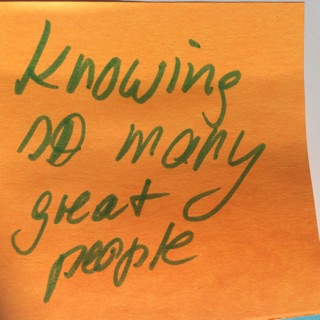 Knowing
so many
great
people